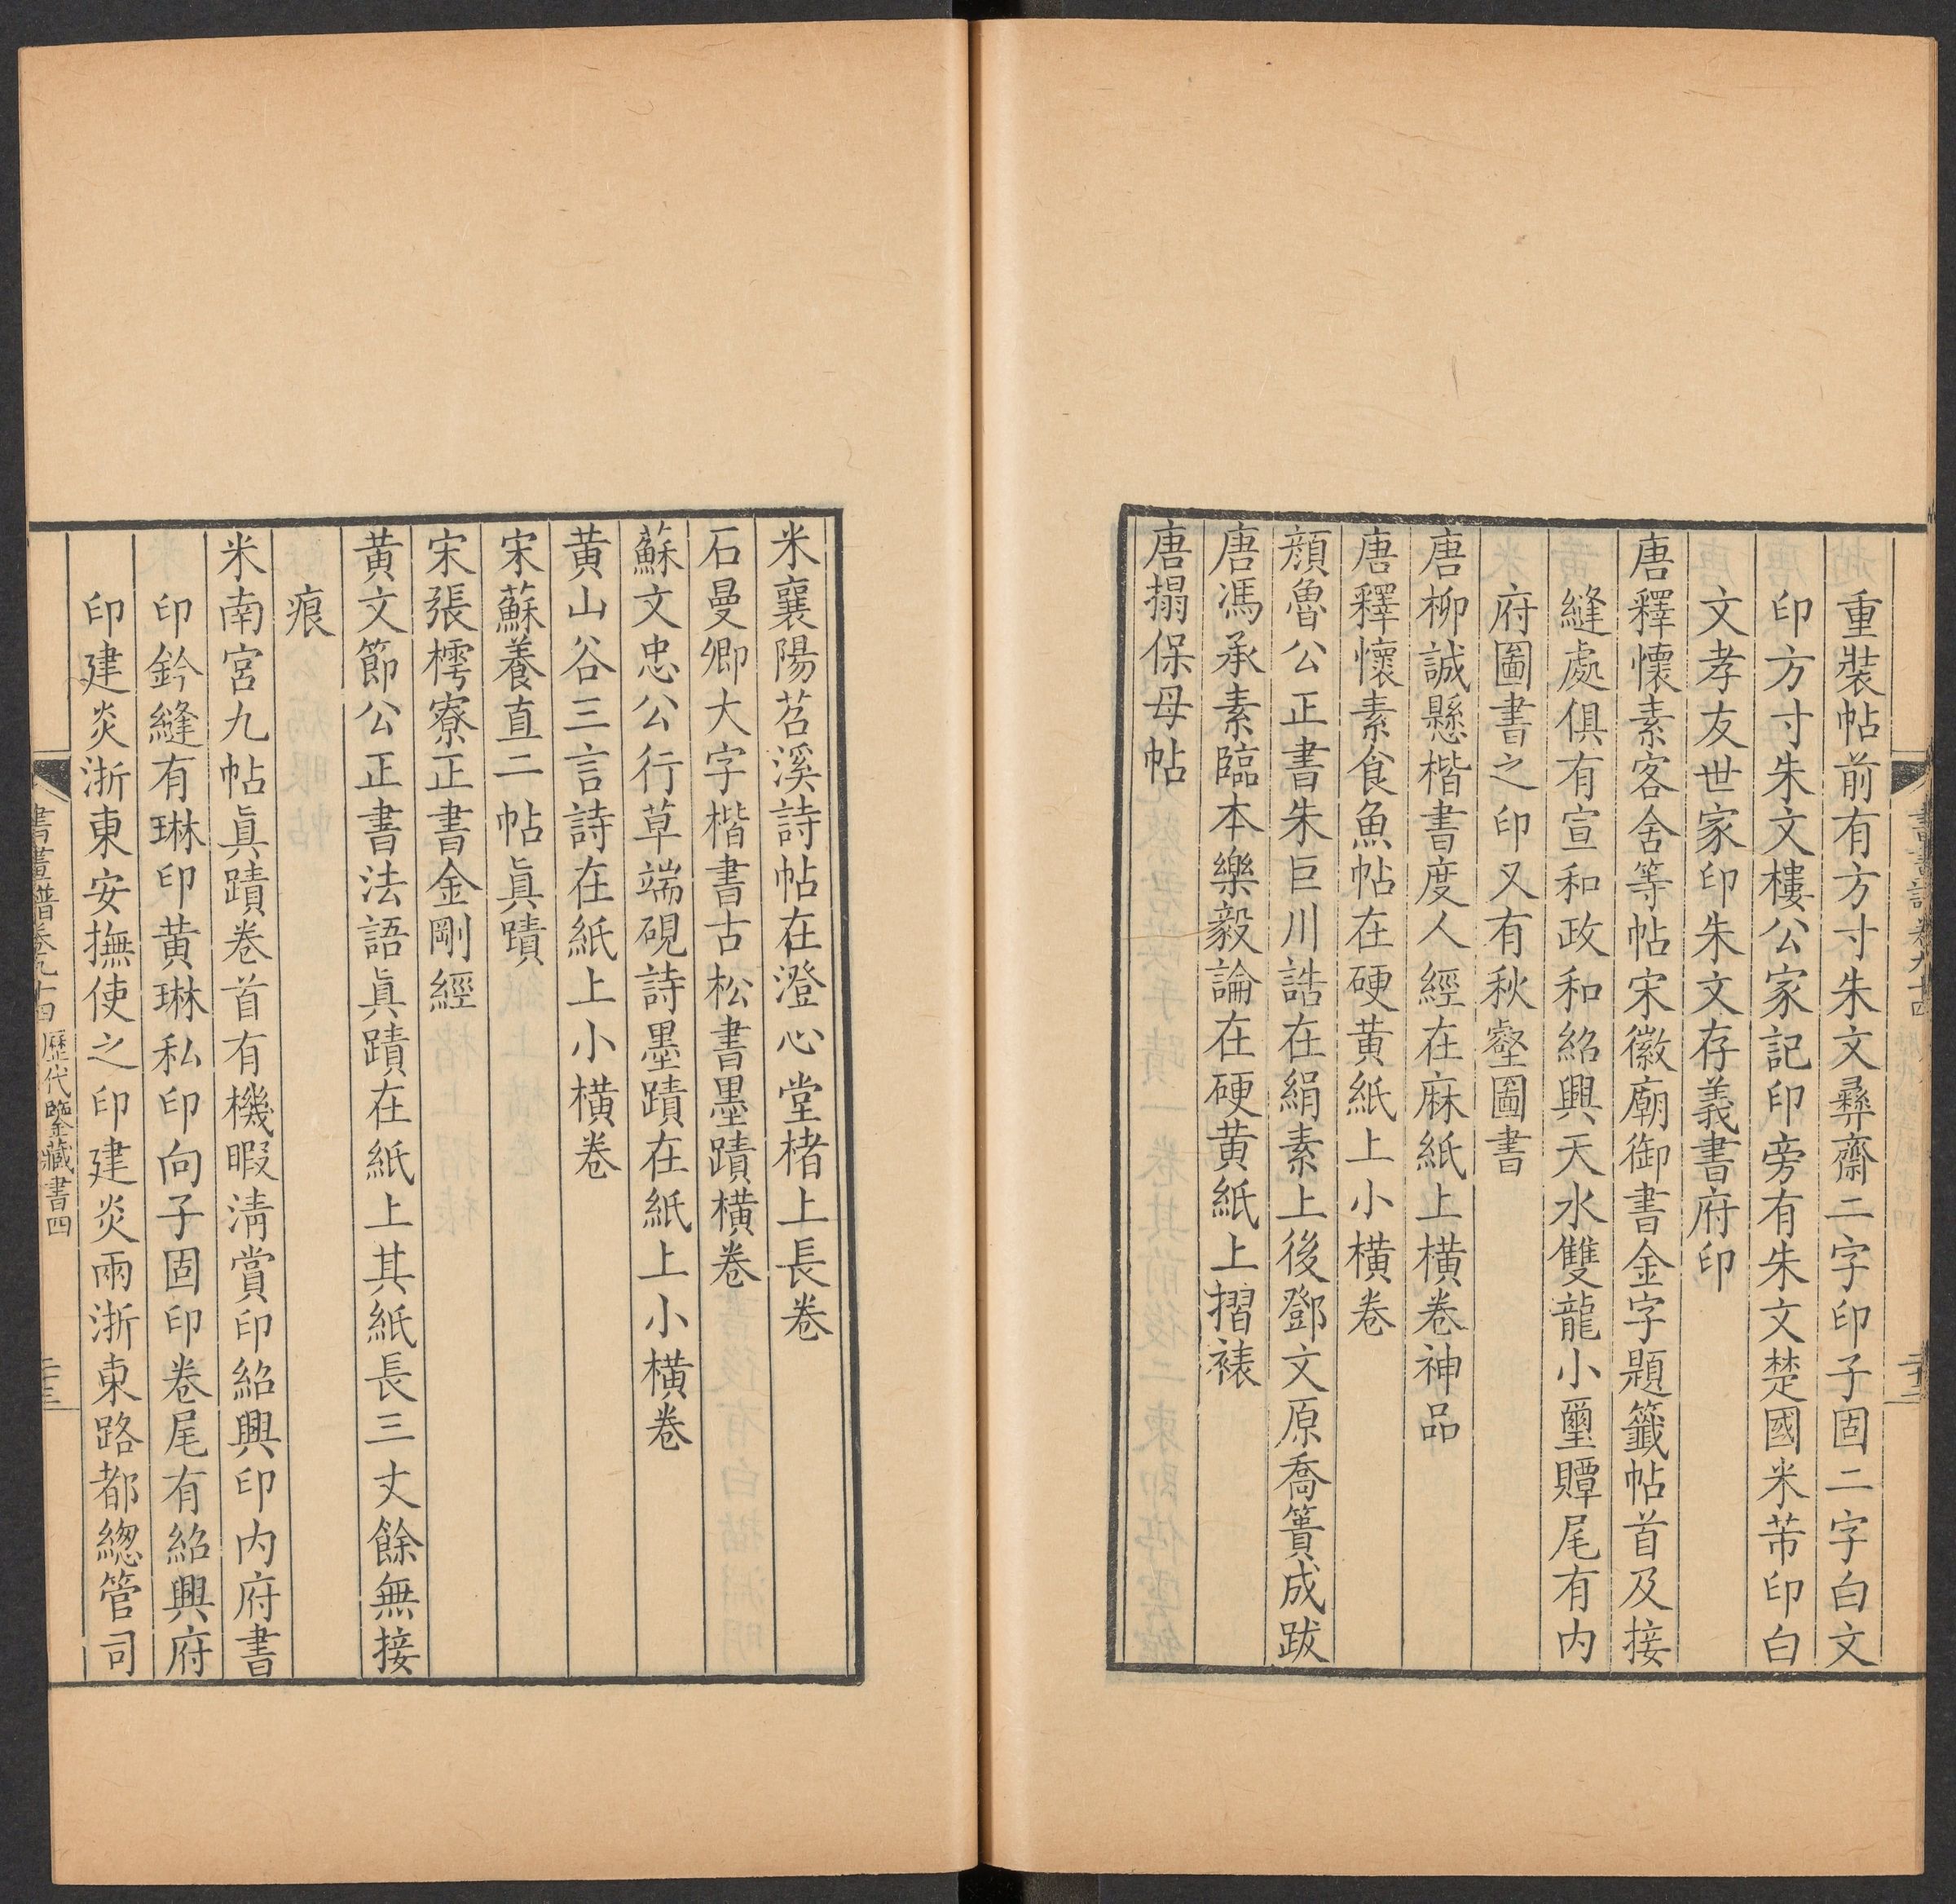 重裝帖前有方寸朱文彝齋二字印子固二字白文
印方寸朱文樓公家記印旁有朱文楚國米芾印白
文孝友世家印朱文存義書府印
唐釋懷素客舍等帖宋徽廟御書金字題籤帖首及接
縫處俱有宣和政和紹興天水雙龍小璽贉尾有内
府圖書之印又有秋壑圖書
唐柳誠懸楷書度人經在麻紙上橫卷神品
唐釋懷素食魚帖在硬黄紙上小橫卷
顔魯公正書朱巨川誥在絹素上後鄧文原喬簣成跋
唐馮承素臨本樂毅論在硬黄紙上摺裱
唐搨保母帖
米襄陽苕溪詩帖在澄心堂楮上長卷
石曼卿大字楷書古松書墨蹟橫卷
蘇文忠公行草端硯詩墨蹟在紙上小橫卷
黄山谷三言詩在紙上小橫卷
宋蘇養直二帖眞蹟
宋張樗寮正書金剛經
黄文節公正書法語眞蹟在紙上其紙長三丈餘無接
痕
米南宮九帖眞蹟卷首有機暇清賞印紹興印内府書
印鈐縫有琳印黄琳私印向子固印卷尾有紹興府
印建炎浙東安撫使之印建炎兩浙東路都總管司
書畫譜卷九十四 歷代鑒藏書四 二十三